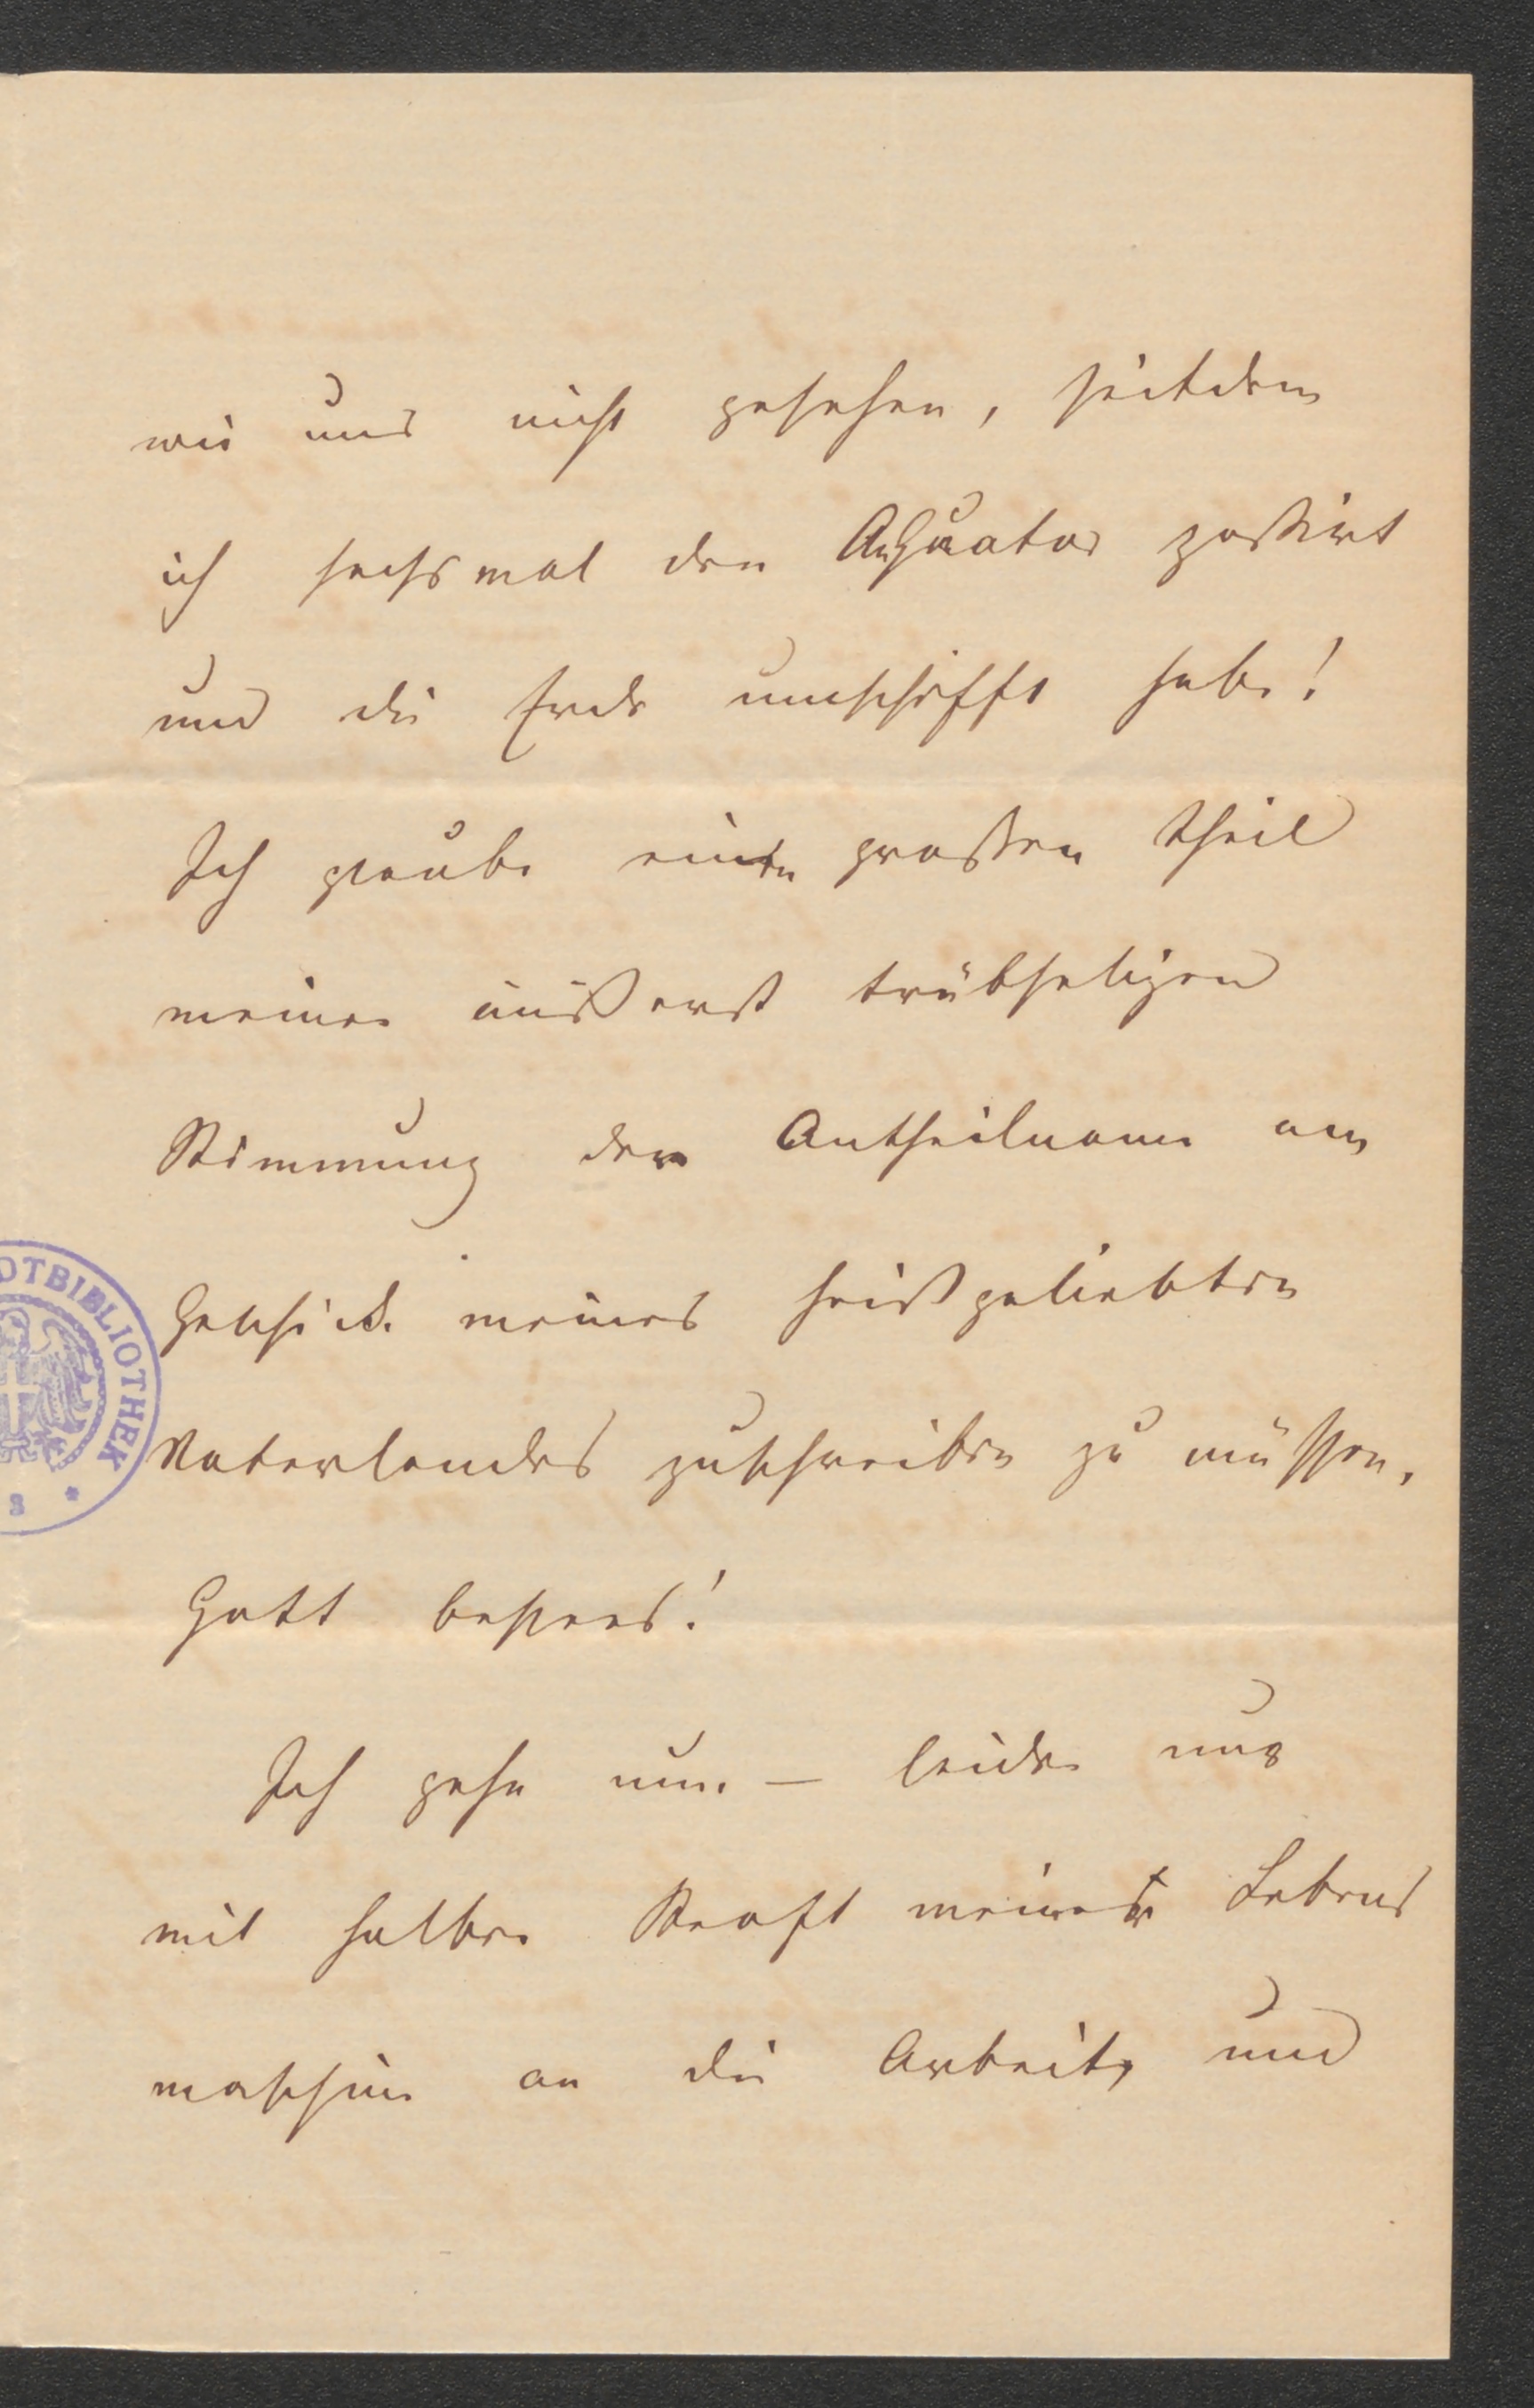 wir uns nicht gesehen, seitdem
ich sechsmal den Aequator passirt
und die Erde umschifft habe!
Ich glaube einen grossen Theil
meiner äußerst trübseligen
Stimmung der Antheilname am
Geschicke meines heißgeliebten
Vaterlandes zuschreiben zu müssen.
Gott bessers!
Ich gehe nun – leider nur
mit halber Kraft meiner Lebens
maschine an die Arbeit, und
DTBIBLIOTHEK